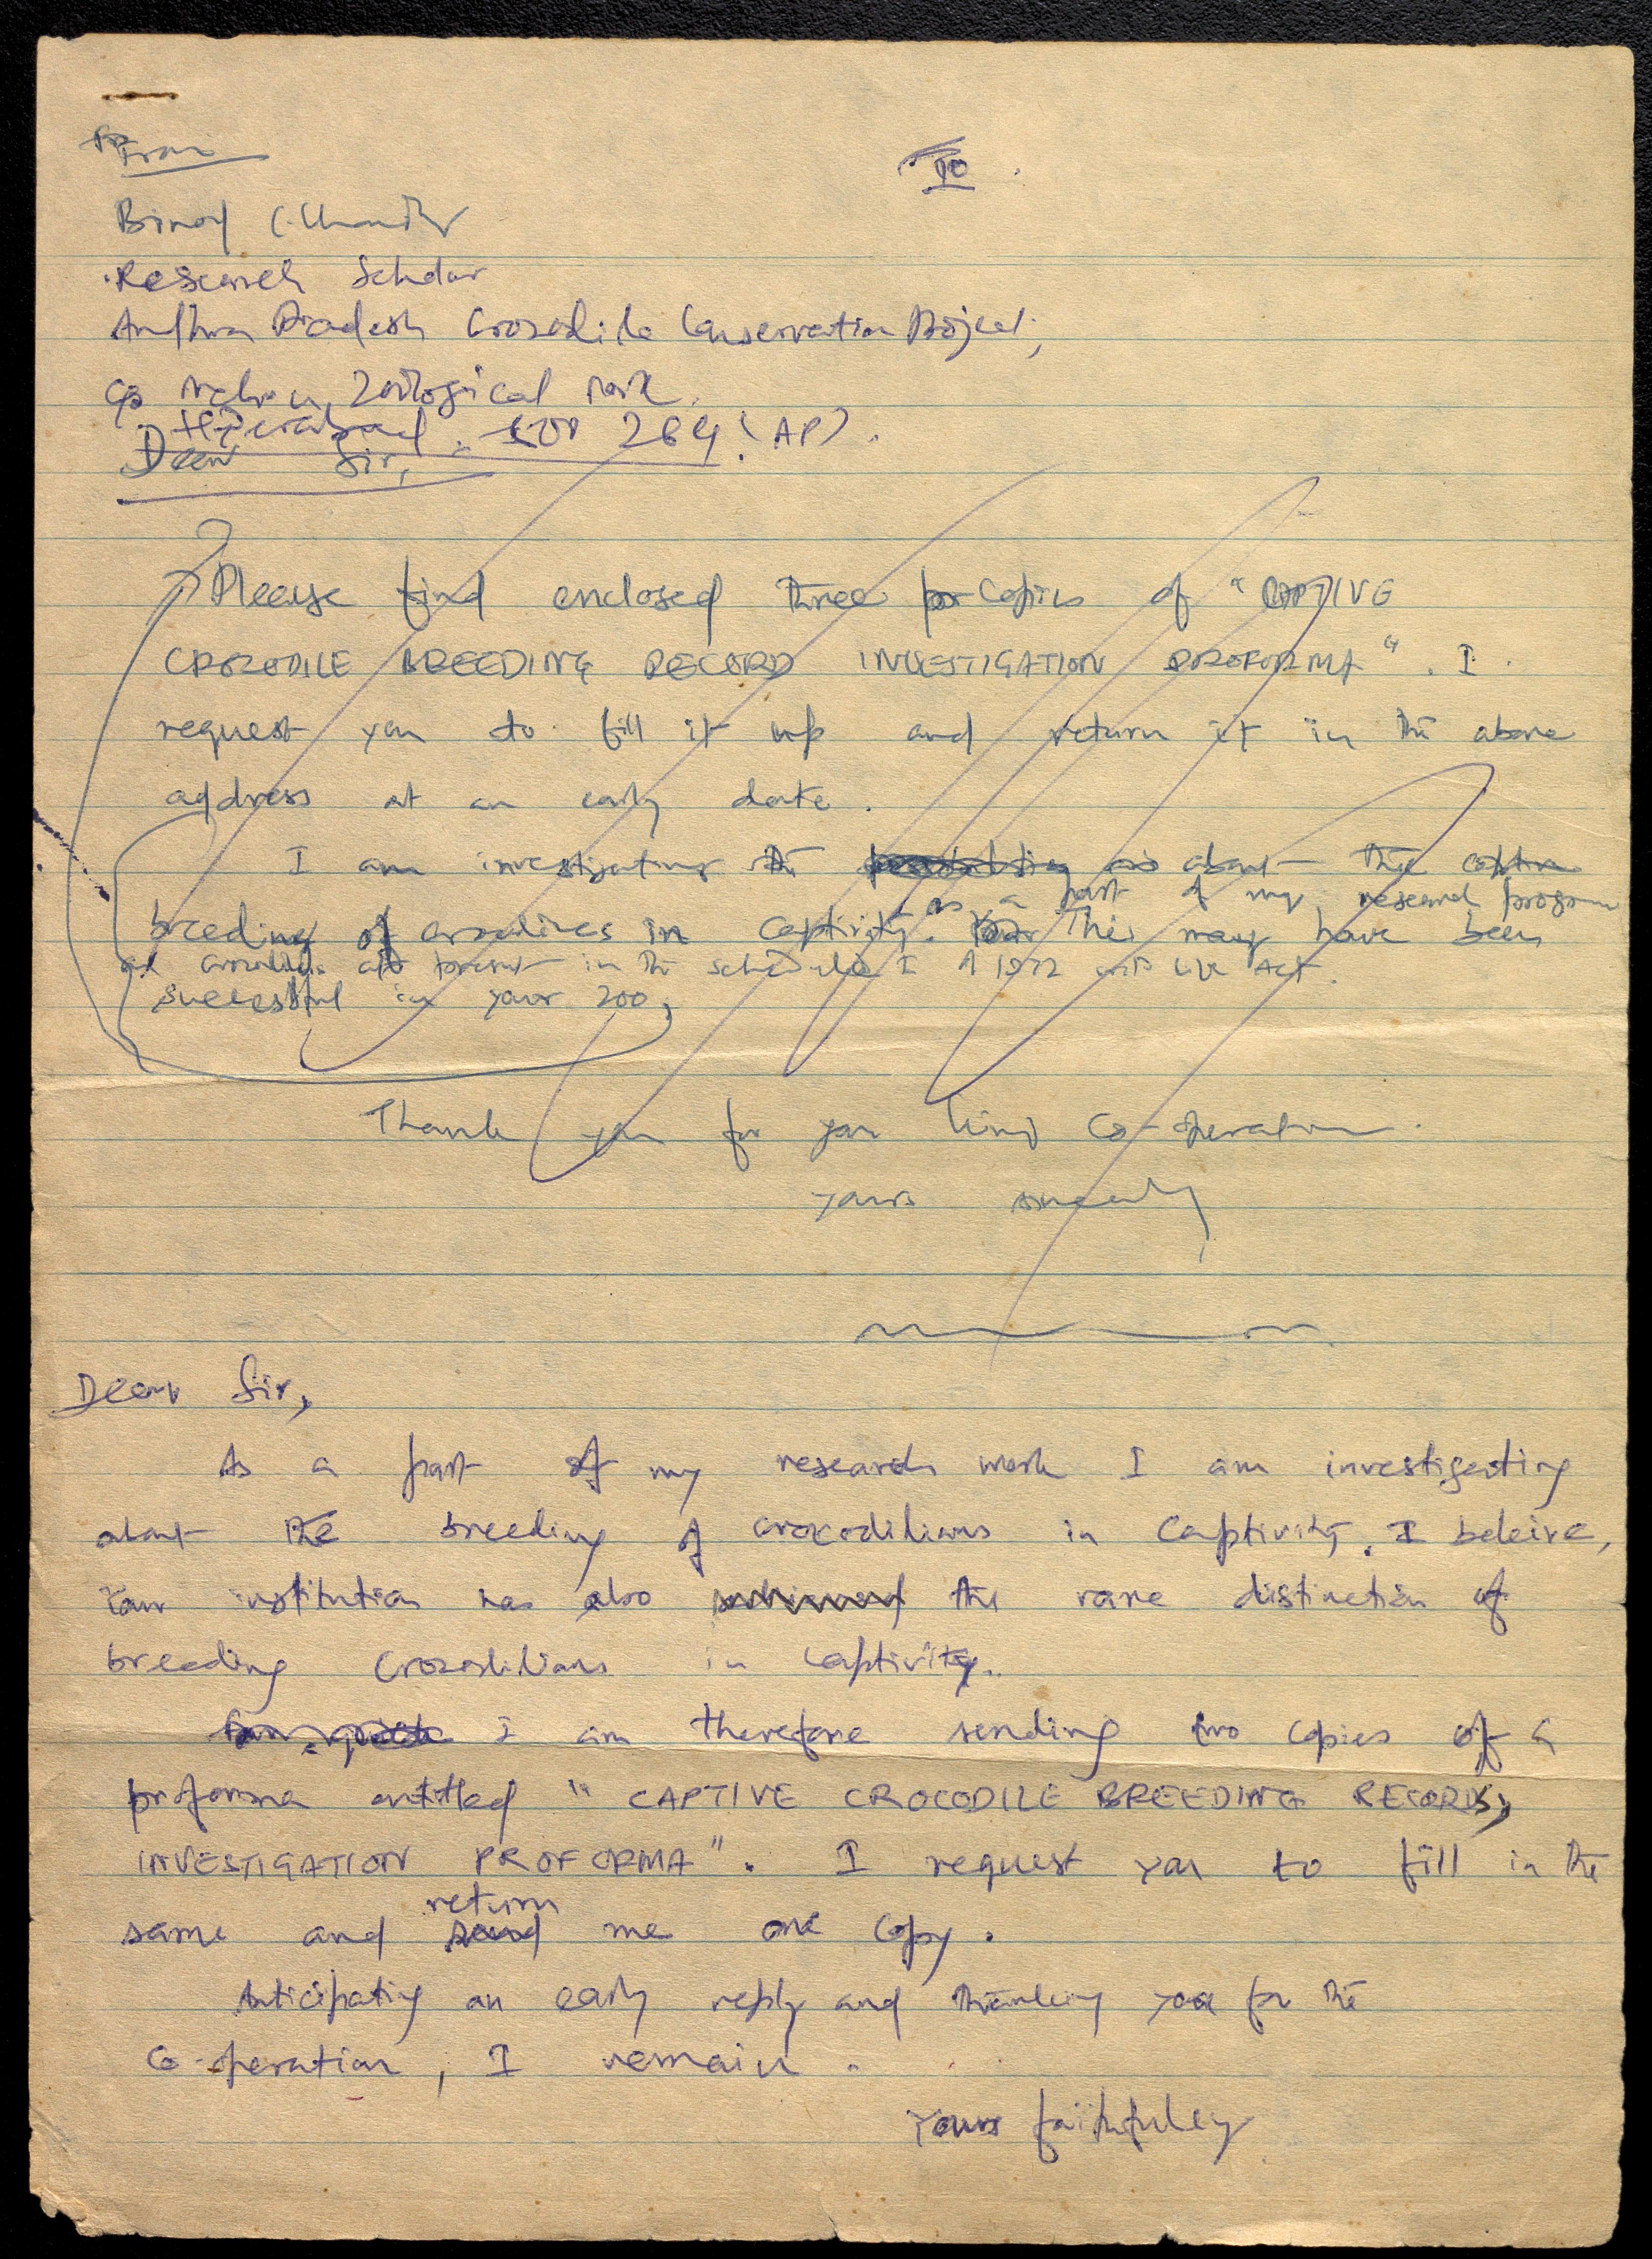 From
To
Binod C. Choudhury
Research Scholar
Andhra Pradesh Crocodile Conservation Project,
c/o Nehru Zoological Park
Hyderabad - 500 264 (AP).
Dear Sir,
Please find enclosed three copies of "CAPTIVE
CROCODILE BREEDING RECORD INVESTIGATION PROFORMA". I
request you to fill it up and return it in the above
address at an early date.
I am investigating the about the captive
as a part of my research program
breeding of crocodiles in captivity. This may have been
all crocodiles are present in the schedule I of 1972 wild life Act.
successful in your zoo,
Thank you for you kind Co-operation.
Yours sincerely
Dear Sir,
As a part of my research work I am investigating
about the breeding of crocodilians in captivity. I beleive,
Your institution has also achieved the rare distinction of
breeding crocodilians in captivity.
I am therefore sending two copies of a
proforma entitled "CAPTIVE CROCODILE BREEDING RECORDS,
INVESTIGATION PROFORMA". I request you to fill in the
return
same and send me one copy.
Anticipating an early reply and thanking you for the
co-operation, I remain.
Yours faithfuley